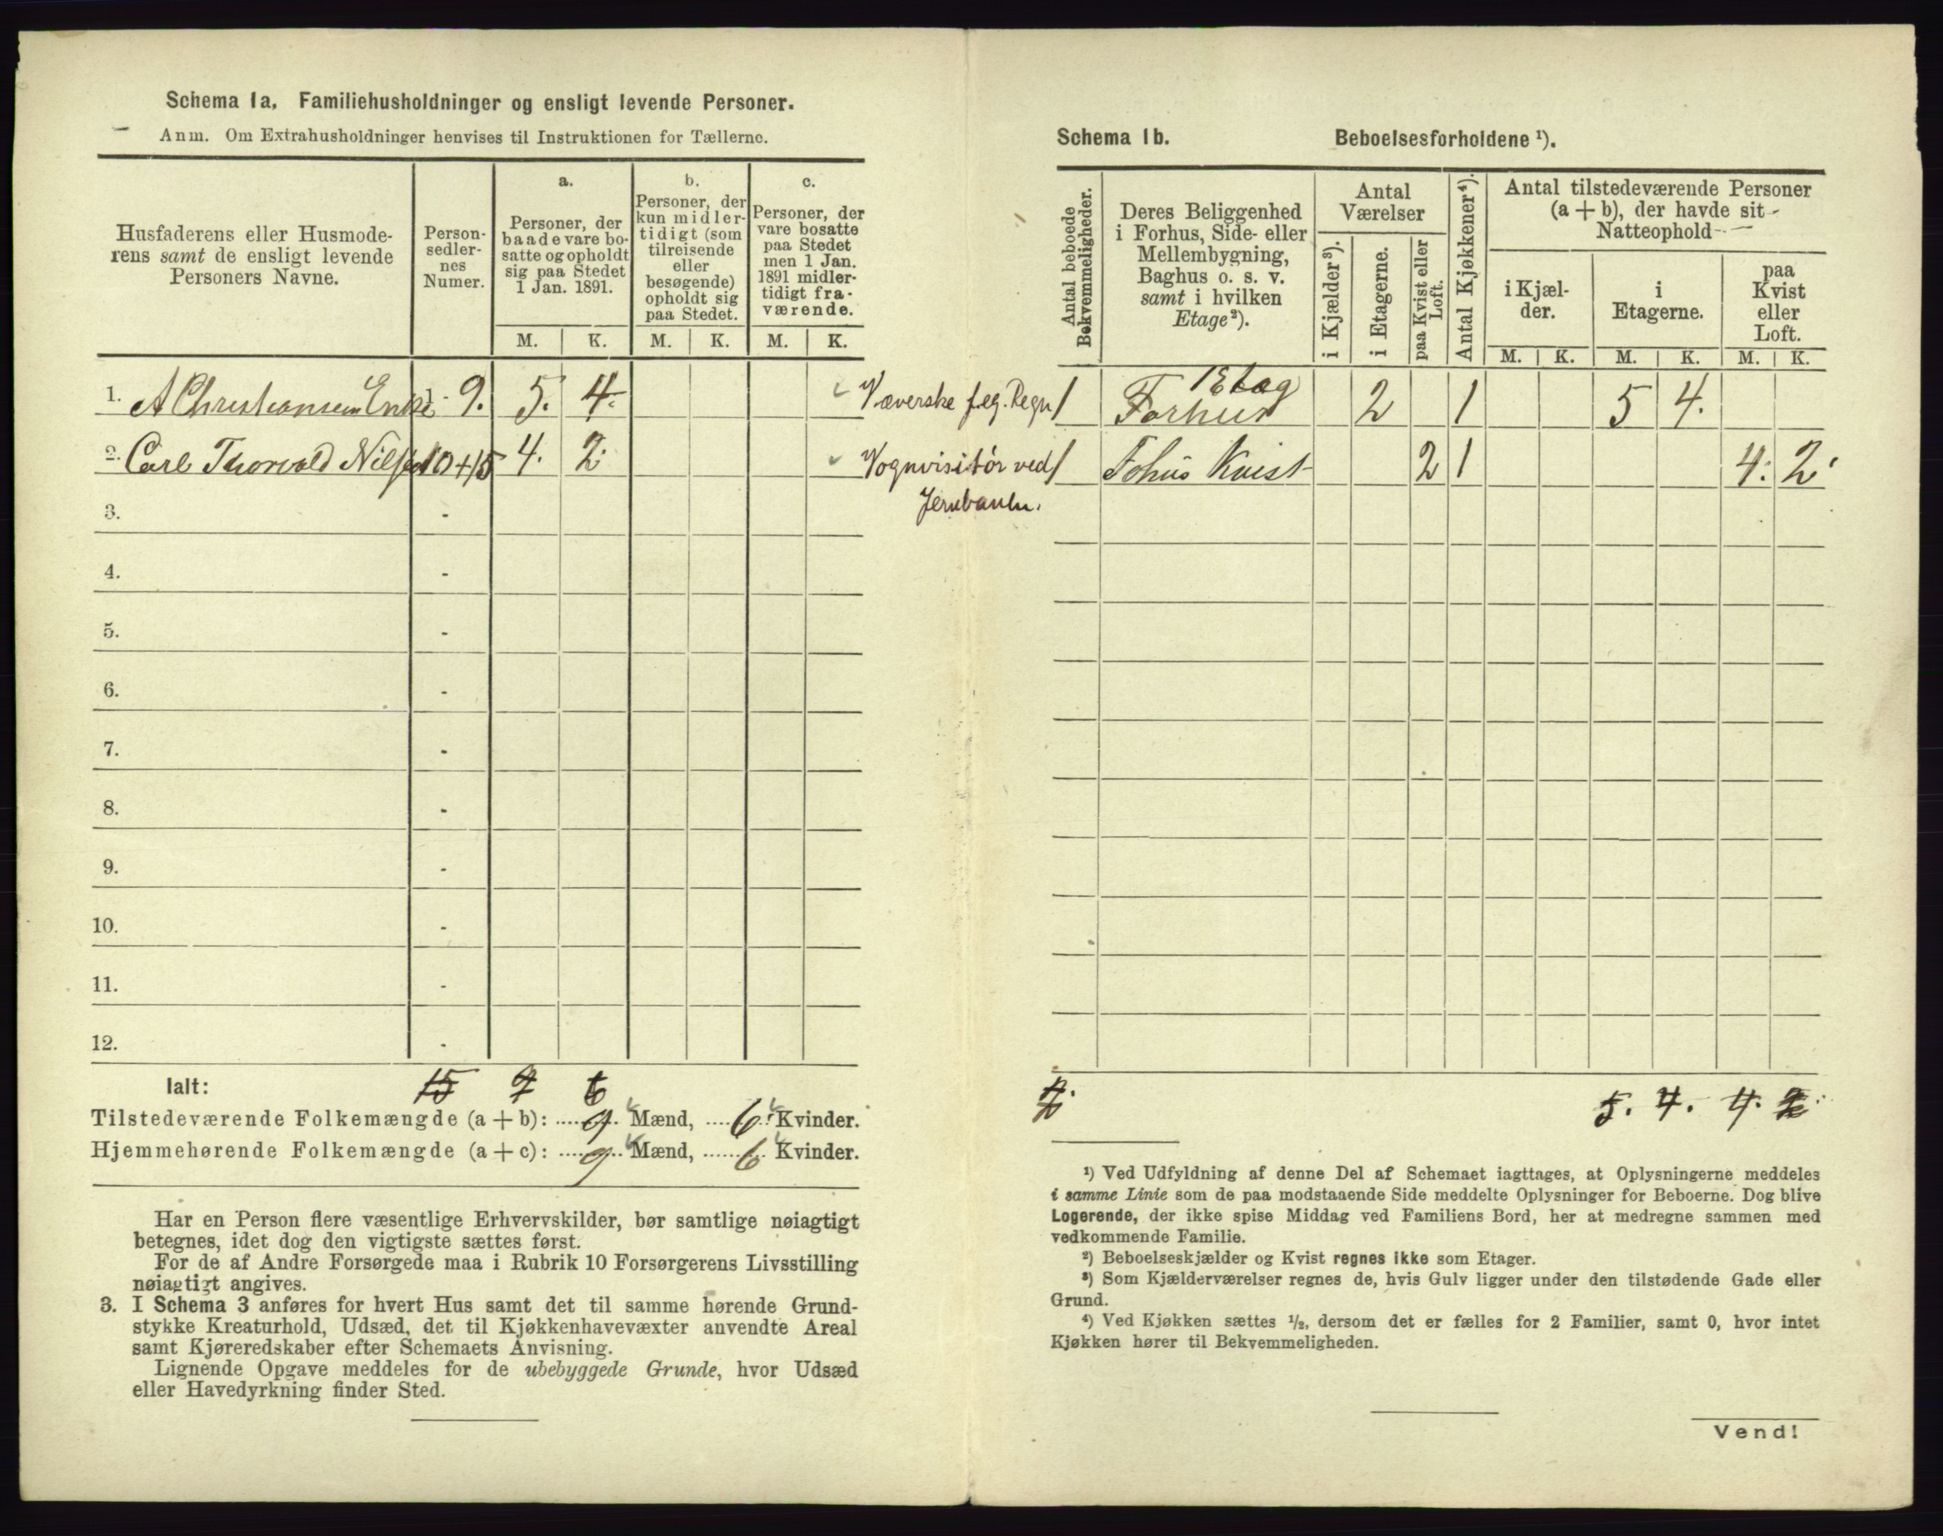 Schema 1a. Familiehusholdninger og ensligt levende Personer.
Anm. Om Extrahusholdninger henvises til Instruktionen for Tællerne.
Husfaderens eller Husmode-
rens samt de ensligt levende
Personers Navne.
Person-
sedler-
nes
Numer.
a.
Personer, der
baade vare bo-
satte og opholdt
sig paa Stedet
1 Jan. 1891.
b.
Personer, der
kun midler-
tidigt (som
tilreisende
eller
besøgende)
opholdt sig
paa Stedet.
c.
Personer, der
vare bosatte
paa Stedet
men 1 Jan.
1891 midler-
tidigt fra-
værende.
M. K. M. K. M. K.
1. A Christiansen Enke 1-9. 5. 4.
2. Carl Thorvald Nilsen 10+15 4. 2.
3. -
4. -
5. -
6. -
7. -
8. -
9. -
10. -
11. -
12. -
Ialt: 15 9 6
Tilstedeværende Folkemængde (a + b): 9 Mænd, 6 Kvinder.
Hjemmehørende Folkemængde (a + c): 9 Mænd, 6 Kvinder.
Har en Person flere væsentlige Erhvervskilder, bør samtlige nøiagtigt
betegnes, idet dog den vigtigste sættes først.
For de af Andre Forsørgede maa i Rubrik 10 Forsørgerens Livsstilling
nøiagtigt angives.
3. I Schema 3 anføres for hvert Hus samt det til samme hørende Grund-
stykke Kreaturhold, Udsæd, det til Kjøkkenhavevæxter anvendte Areal
samt Kjøreredskaber efter Schemaets Anvisning.
Lignende Opgave meddeles for de ubebyggede Grunde, hvor Udsæd
eller Havedyrkning finder Sted.
Schema 1b. Beboelsesforholdene ¹).
Antal beboede
Bekvemmeligheder.
Deres Beliggenhed
i Forhus, Side- eller
Mellembygning,
Baghus o. s. v.
samt i hvilken
Etage²).
Antal
Værelser
i Kjælder³).
i Etagerne.
paa Kvist eller
Loft.
Antal Kjøkkener⁴).
Antal tilstedeværende Personer
(a + b), der havde sit
Natteophold
i Kjæl-
der.
i
Etagerne.
paa
Kvist
eller
Loft.
M. K. M. K. M. K.
Væverske f. eg. Regn 1 Forhus 1 Etag 2 1 5 4.
Vognvisitør ved 1 Fohus Kvist 2 1 4. 2
Jernbanen.
2. 5. 4. 4. 2
¹) Ved Udfyldning af denne Del af Schemaet iagttages, at Oplysningerne meddeles
i samme Linie som de paa modstaaende Side meddelte Oplysninger for Beboerne. Dog blive
Logerende, der ikke spise Middag ved Familiens Bord, her at medregne sammen med
vedkommende Familie.
²) Beboelseskjælder og Kvist regnes ikke som Etager.
³) Som Kjælderværelser regnes de, hvis Gulv ligger under den tilstødende Gade eller
Grund.
⁴) Ved Kjøkken sættes ½, dersom det er fælles for 2 Familier, samt 0, hvor intet
Kjøkken hører til Bekvemmeligheden.
Vend!